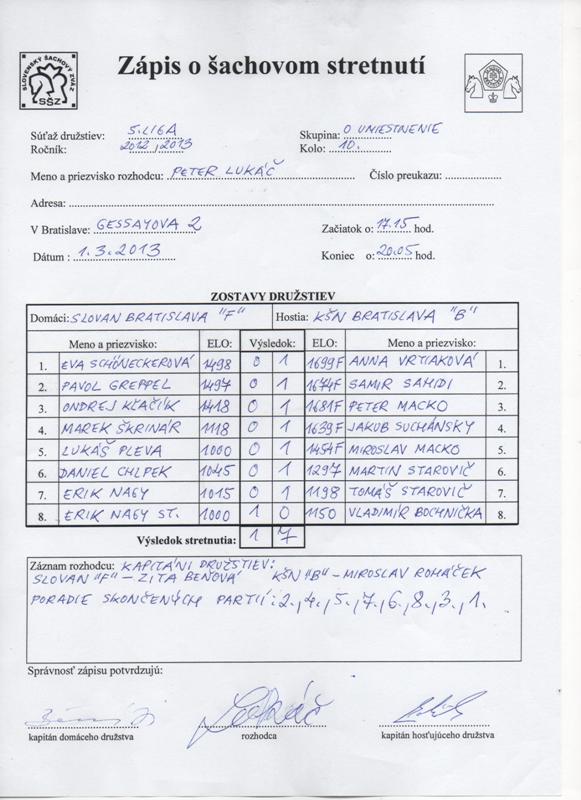 SLOVENSKÝ ŠACHOVÝ ZVÄZ
SŠZ
Zápis o šachovom stretnutí
Súťaž družstiev: 5. LIGA
Skupina: O UMIESTNENIE
Ročník: 2012/2013
Kolo: 10.
Meno a priezvisko rozhodcu: PETER LUKÁČ
Číslo preukazu:
Adresa:
V Bratislave: GESSAYOVA 2
Začiatok o: 17.15 hod.
Dátum : 1.3.2013
Koniec o: 20.05 hod.
ZOSTAVY DRUŽSTIEV
Domáci: SLOVAN BRATISLAVA "F" Hostia: KŠN BRATISLAVA "B"
Meno a priezvisko: ELO: Výsledok: ELO: Meno a priezvisko:
1. EVA SCHÖNECKEROVÁ 1498 0 1 1699F ANNA VRTIAKOVÁ 1.
2. PAVOL GREPPEL 1497 0 1 1674F SAMIR SAHIDI 2.
3. ONDREJ KĽAČIK 1418 0 1 1681F PETER MACKO 3.
4. MAREK ŠKRINÁR 1118 0 1 1639F JAKUB SUCHÁNSKY 4.
5. LUKÁŠ PLEVA 1000 0 1 1454F MIROSLAV MACKO 5.
6. DANIEL CHLPEK 1045 0 1 1297 MARTIN STAROVIČ 6.
7. ERIK NAGY 1015 0 1 1198 TOMÁŠ STAROVIČ 7.
8. ERIK NAGY ST. 1000 1 0 1150 VLADIMÍR BOCHNIČKA 8.
Výsledok stretnutia: 1 7
Záznam rozhodcu: KAPITÁNI DRUŽSTIEV:
SLOVAN "F" – ZITA BEŇOVÁ KŠN "B" – MIROSLAV ROHÁČEK
PORADIE SKONČENÝCH PARTIÍ: 2., 4., 5., 7., 6., 8., 3., 1.
Správnosť zápisu potvrdzujú:
Lukáč
kapitán domáceho družstva rozhodca kapitán hosťujúceho družstva